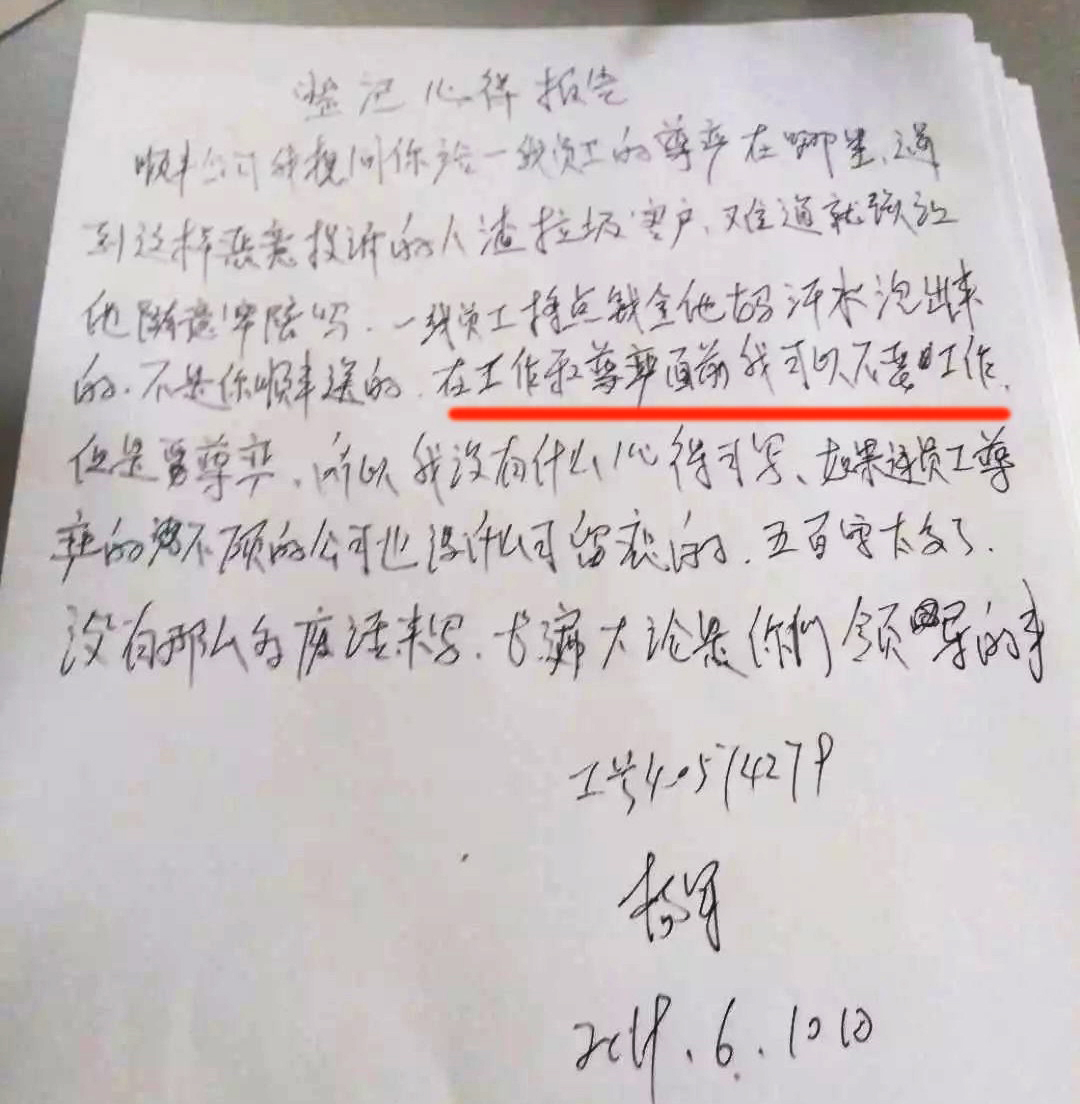 整况心得报告
顺丰公司我想问你给一线员工的尊严在哪里、遇
到这样恶意投诉的人渣垃圾客户、难道就强让
他随意牢陪吗.一线员工挣点钱全他妈汗水泡出来
的.不是你顺丰送的.在工作和尊严面前我可以不要工作.
但是要尊严、所以我没有什么心得可写、如果连员工尊
严的都不顾的公司也没什么可留恋的.五百字太多了.
没有那么多废话来写.长篇大论是你们领导的事
工号40574279
杨军
2019.6.10日